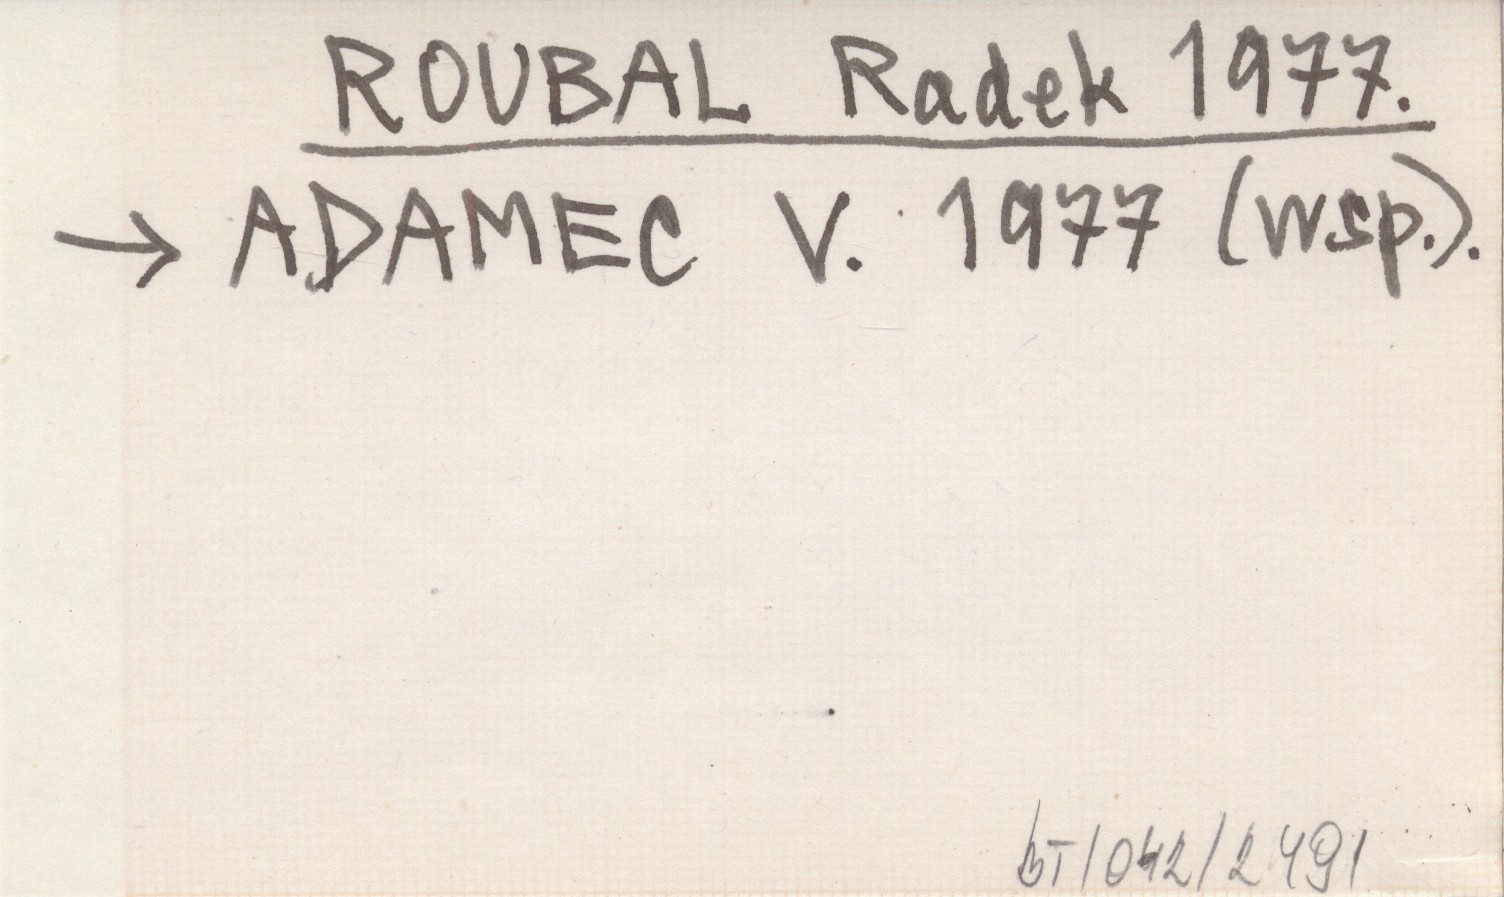 ROUBAL Radek 1977.
→ ADAMEC V. 1977 (wsp.).
BT/042/2491